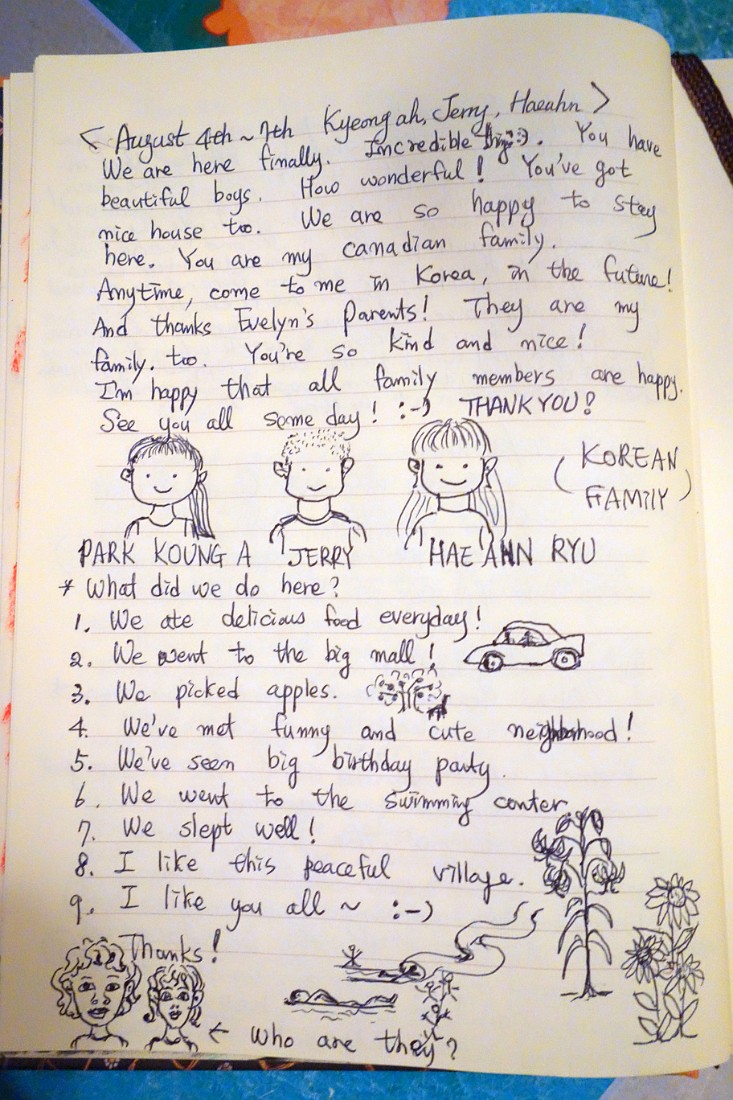 < August 4th ~ 7th Kyeong ah, Jerry, Haeahn >
We are here finally. Incredible :-). You have
beautiful boys. How wonderful! You've got
nice house too. We are so happy to stay
here. You are my canadian family.
Anytime, come to me in Korea, in the future!
And thanks Evelyn's parents! They are my
family. too. You're so kind and nice!
I'm happy that all family members are happy.
See you all some day! :-) THANK YOU!
(KOREAN
FAMILY)
PARK KOUNG A JERRY HAE AHN RYU
* What did we do here?
1. We ate delicious food everyday!
2. We went to the big mall!
3. We picked apples.
4. We've met funny and cute neighborhood!
5. We've seen big birthday party.
6. We went to the swimming center
7. We slept well!
8. I like this peaceful village.
9. I like you all ~ :-)
Thanks!
← Who are they?